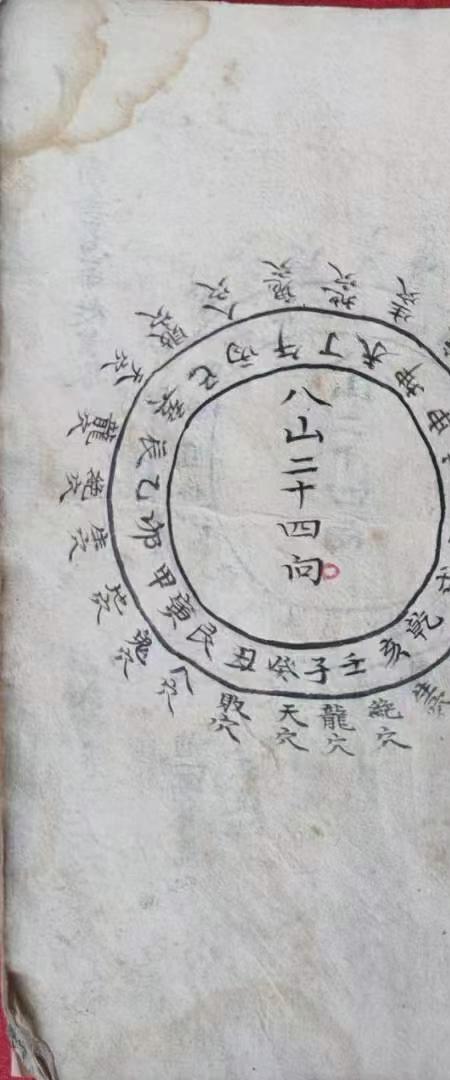 八山二十四向
壬子癸丑艮寅甲卯乙辰巽巳丙午丁未坤申
乾亥
絕穴
龍穴
天穴
敗穴
人穴
鬼穴
地穴
絕穴
龍穴
天穴
敗穴
人穴
鬼穴
地穴
生穴